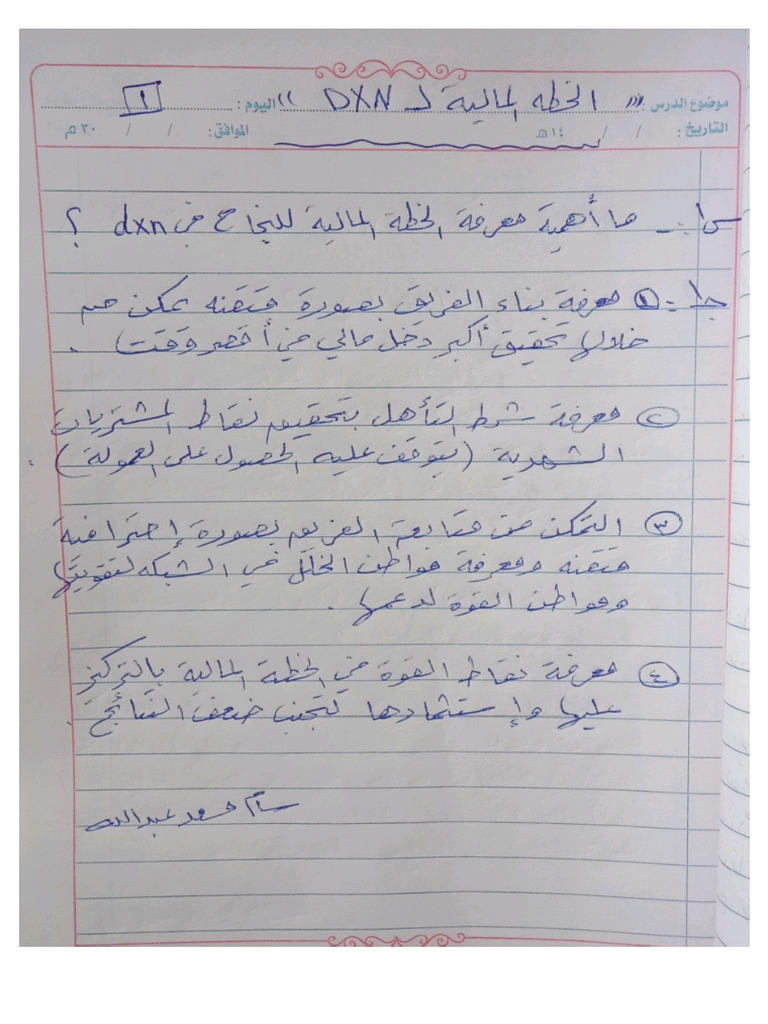 موضوع الدرس : «الخطه المالية لـ DXN» اليوم : ١
التاريخ : / / ١٤هـ الموافق : / / ٢٠م
س١ :- ما أهمية معرفة الخطة المالية للنجاح في dxn ؟
ج١ :- ① معرفة بناء الفريق بصورة متقنه يمكن من
خلالها تحقيق أكبر دخل مالي في أقصر وقت .
② معرفة شرط التأهل بتحقيق نقاط المشتريات
الشهرية (يتوقف عليه الحصول على العمولة) .
③ التمكن من متابعة الفريق بصورة إحترافية
متقنه ومعرفة مواطن الخلل في الشبكه لتقويتها
ومواطن القوة لدعمها .
④ معرفة نقاط القوة في الخطة المالية بالتركيز
عليها وإستثمارها لتجنب ضعف النتائج .
محمد عبدالله